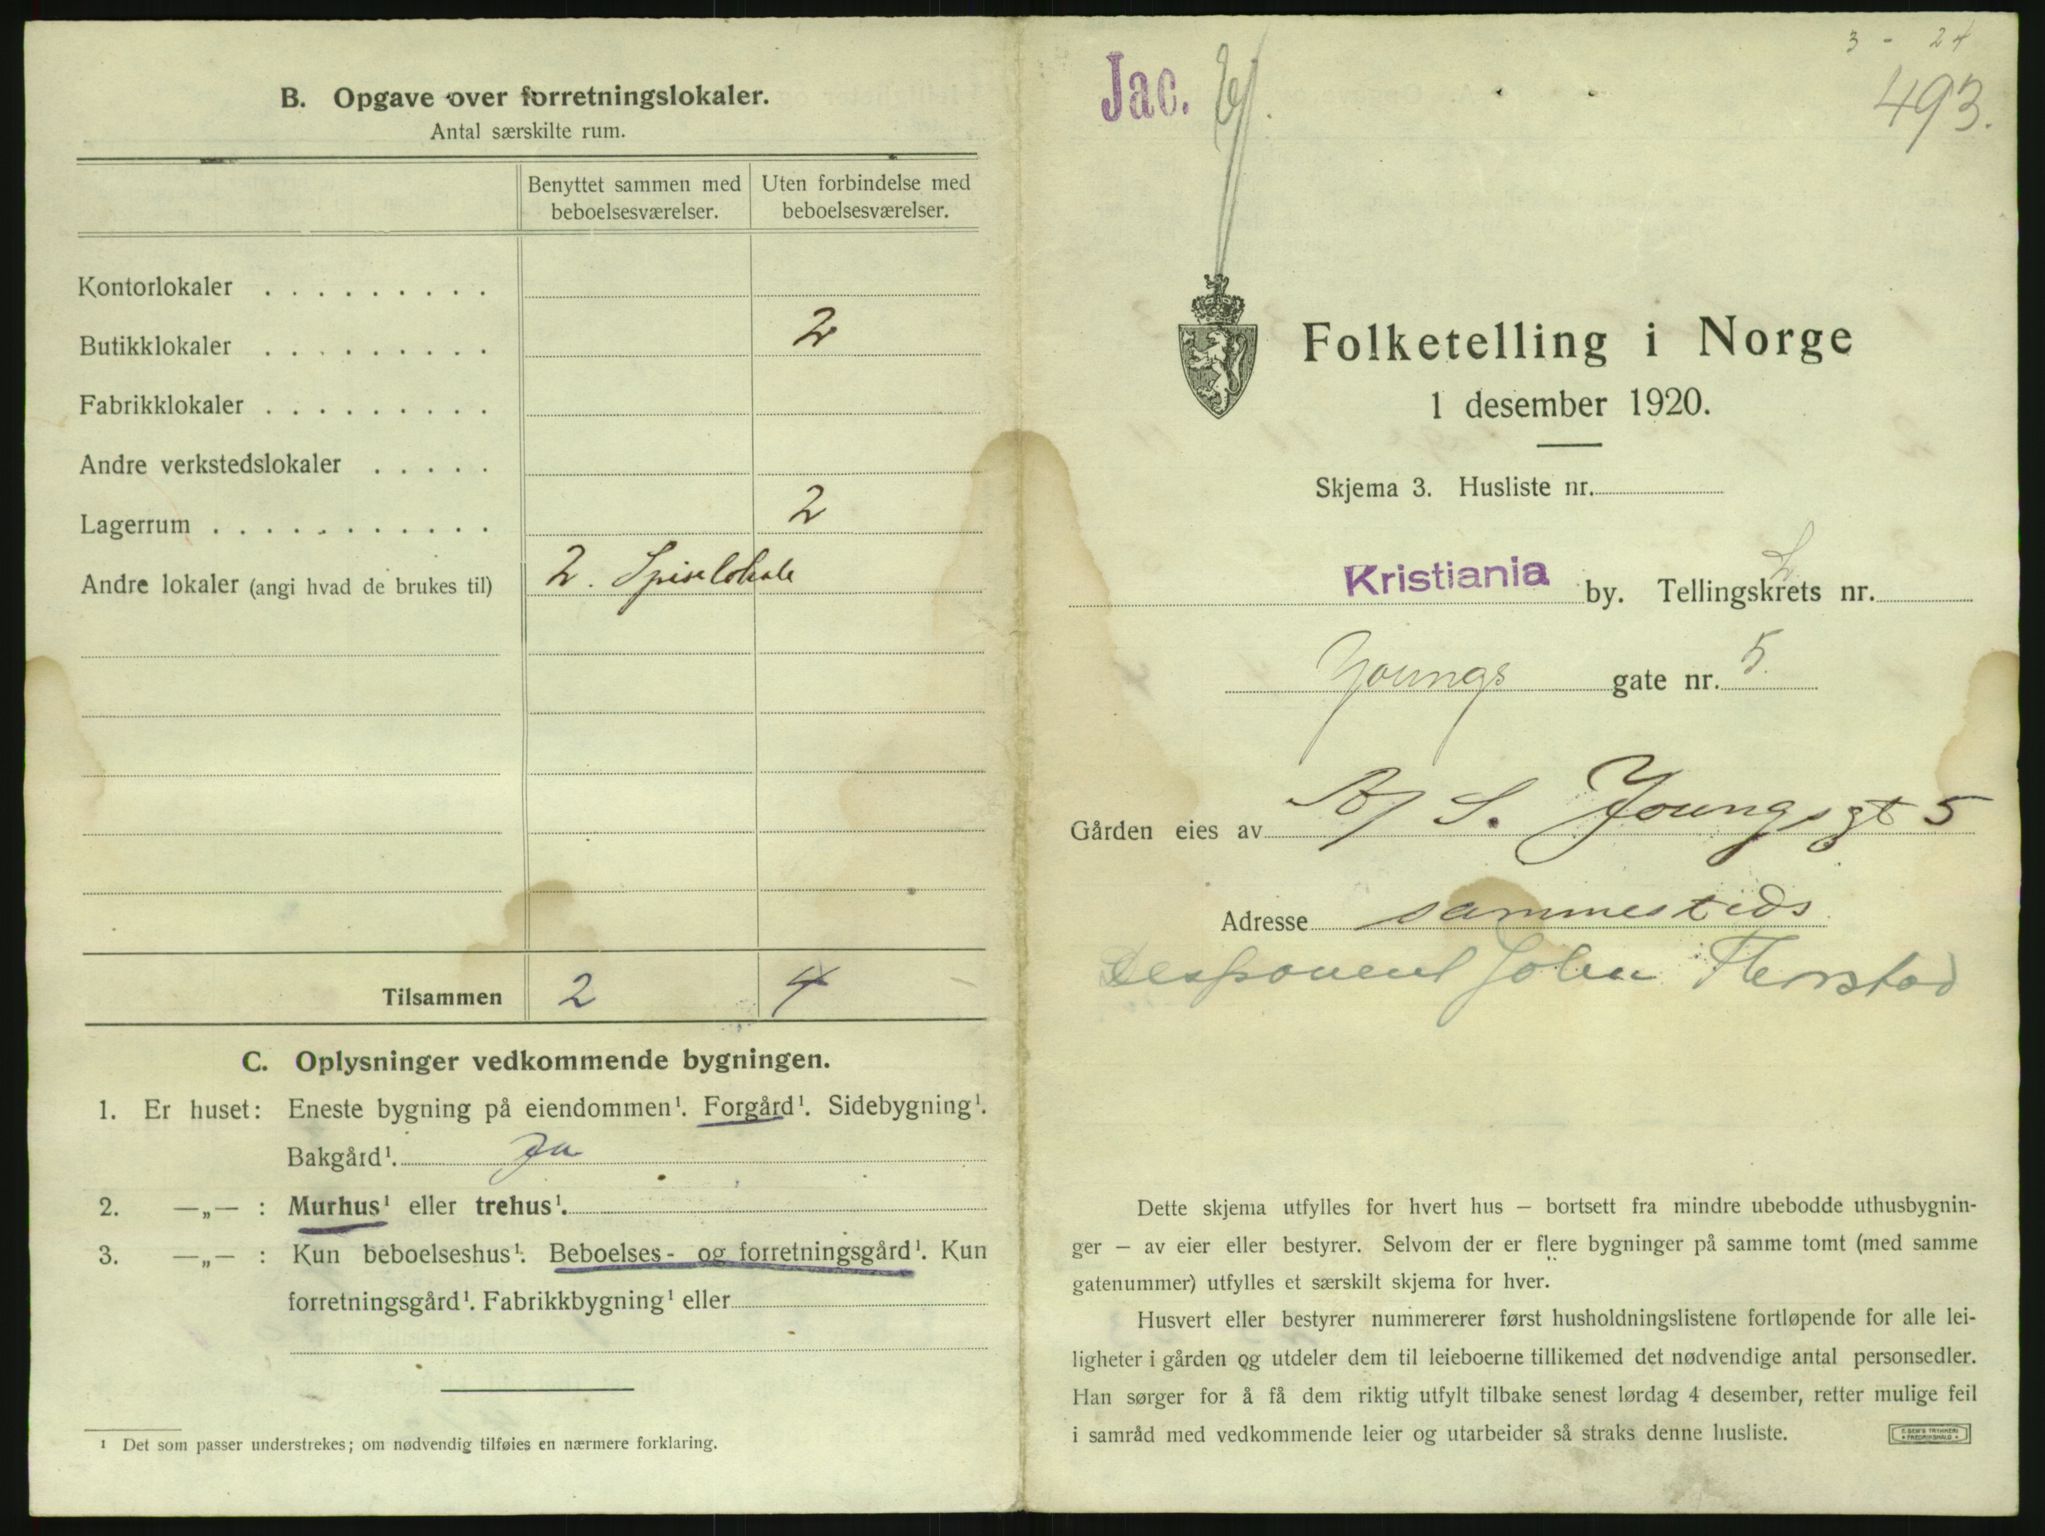 B. Opgave over forretningslokaler.
Antal særskilte rum.
Benyttet sammen med beboelsesværelser.
Uten forbindelse med beboelsesværelser.
Kontorlokaler . . . . . . . . .
Butikklokaler . . . . . . . . . 2
Fabrikklokaler . . . . . . . . .
Andre verkstedslokaler . . . . .
Lagerrum . . . . . . . . . . . 2
Andre lokaler (angi hvad de brukes til) 2. Spiselokale
Tilsammen 2 4
C. Oplysninger vedkommende bygningen.
1. Er huset: Eneste bygning på eiendommen¹. Forgård¹. Sidebygning¹.
Bakgård¹. Ja
2. —„— : Murhus¹ eller trehus¹.
3. —„— : Kun beboelseshus¹. Beboelses- og forretningsgård¹. Kun
forretningsgård¹. Fabrikkbygning¹ eller
¹ Det som passer understrekes; om nødvendig tilføies en nærmere forklaring.
3 - 24
Jac.
493.
Folketelling i Norge
1 desember 1920.
Skjema 3. Husliste nr.
Kristiania by. Tellingskrets nr. 2
Youngs gate nr. 5.
Gården eies av A/S. Youngsgt 5
Adresse sammesteds
Desponent John Flerstad
Dette skjema utfylles for hvert hus — bortsett fra mindre ubebodde uthusbygnin-
ger — av eier eller bestyrer. Selvom der er flere bygninger på samme tomt (med samme
gatenummer) utfylles et særskilt skjema for hver.
Husvert eller bestyrer nummererer først husholdningslistene fortløpende for alle lei-
ligheter i gården og utdeler dem til leieboerne tillikemed det nødvendige antal personsedler.
Han sørger for å få dem riktig utfylt tilbake senest lørdag 4 desember, retter mulige feil
i samråd med vedkommende leier og utarbeider så straks denne husliste.